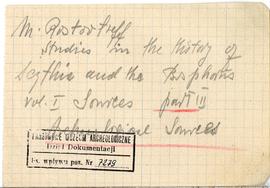 M. Rostovtzeff
Studies in the History of
Scythia and the Bosphorus
vol. I Sources part II
Archeological Sources
PAŃSTWOWE MUZEUM ARCHEOLOGICZNE
Dział Dokumentacji
Ks. wpływu poz. Nr 7239